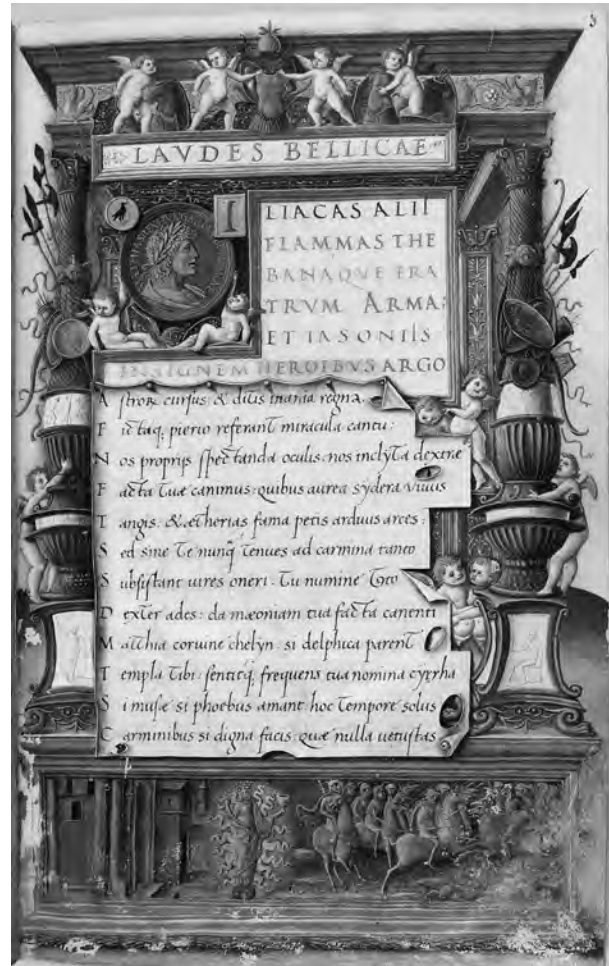 3
LAVDES BELLICAE
I
LIACAS ALII
FLAMMAS THE
BANAQVE FRA
TRVM ARMA:
ET IASONIIS
INSIGNEM HEROIBVS ARGO
A stroꝝ cursus: & ditis inania regna.
F ictaq; pierio referant miracula cantu:
N os proprijs spectanda oculis: nos inclyta dextræ
F acta tuæ canimus: quibus aurea sydera viuus
T angis: & ætherias fama petis arduus arces:
S ed sine te nunq̃ tenues ad carmina tanto
S ubsistant uires oneri. Tu numine toto
D exter ades: da mæoniam tua facta canenti
M atthia coruine chelyn: si delphica parent
T empla tibi: sentitq; frequens tua nomina cyrrha
S i musæ si phoebus amant: hoc tempore solus
C arminibus si digna facis: quæ nulla uetustas